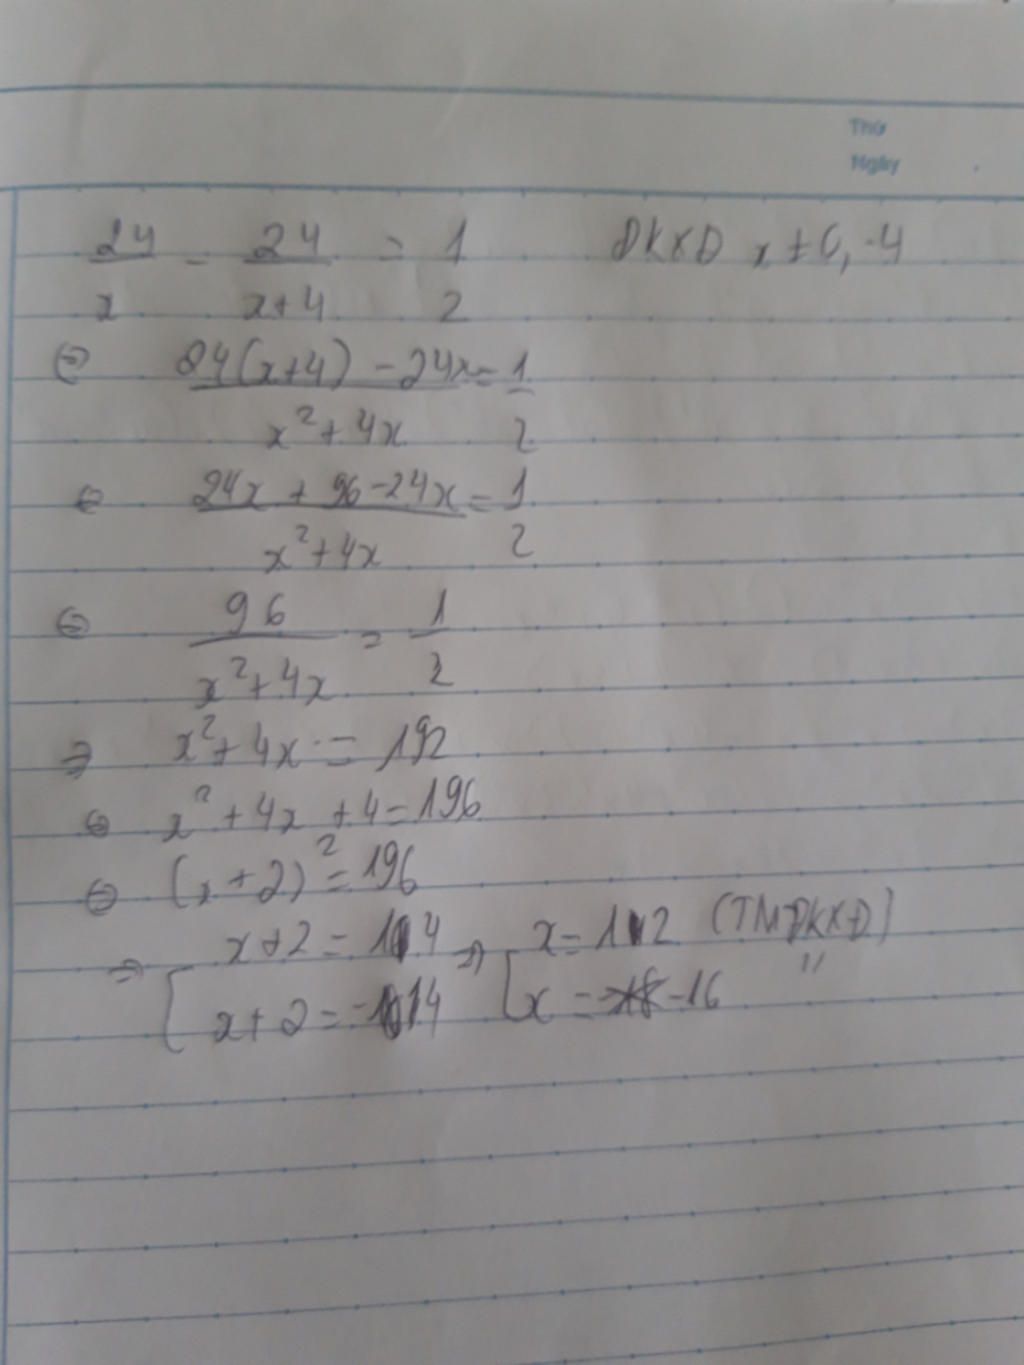 Thứ
Ngày
24/x - 24/(x+4) = 1/2 ĐKXĐ x ≠ 0, -4
⇔ (24(x+4) - 24x)/(x² + 4x) = 1/2
⇔ (24x + 96 - 24x)/(x² + 4x) = 1/2
⇔ 96/(x² + 4x) = 1/2
⇒ x² + 4x = 192
⇔ x² + 4x + 4 = 196
⇔ (x + 2)² = 196
⇒ [ x + 2 = 14 ⇒ [ x = 12 (TMĐKXĐ)
x + 2 = -14 x = -16 "